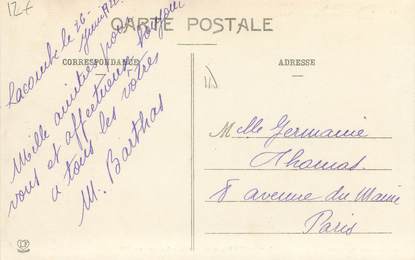 12€
CARTE POSTALE
CORRESPONDANCE
ADRESSE
Lacombe le 26
Mille amitiés pour
vous et affectueux bonjour
à tous les vôtres
M. Barthas
Melle Germaine
Thomas.
8 avenue du Maine
Paris